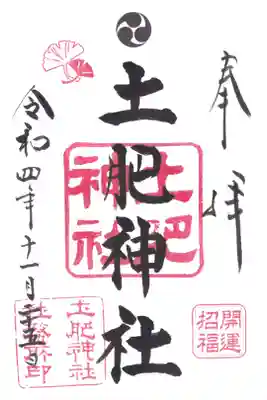 奉拝
開運
招福
土肥神社
土肥
神社
令和四年十一月二十五日
土肥神社
社務所印